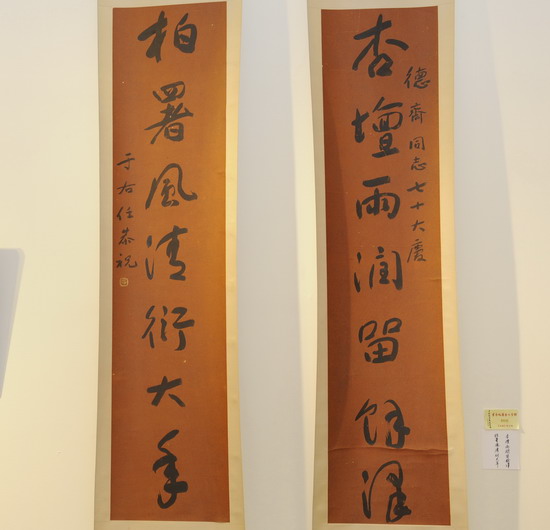 杏壇雨潤留餘澤
德齋同志七十大慶
柏署風清衍大年
于右任恭祝